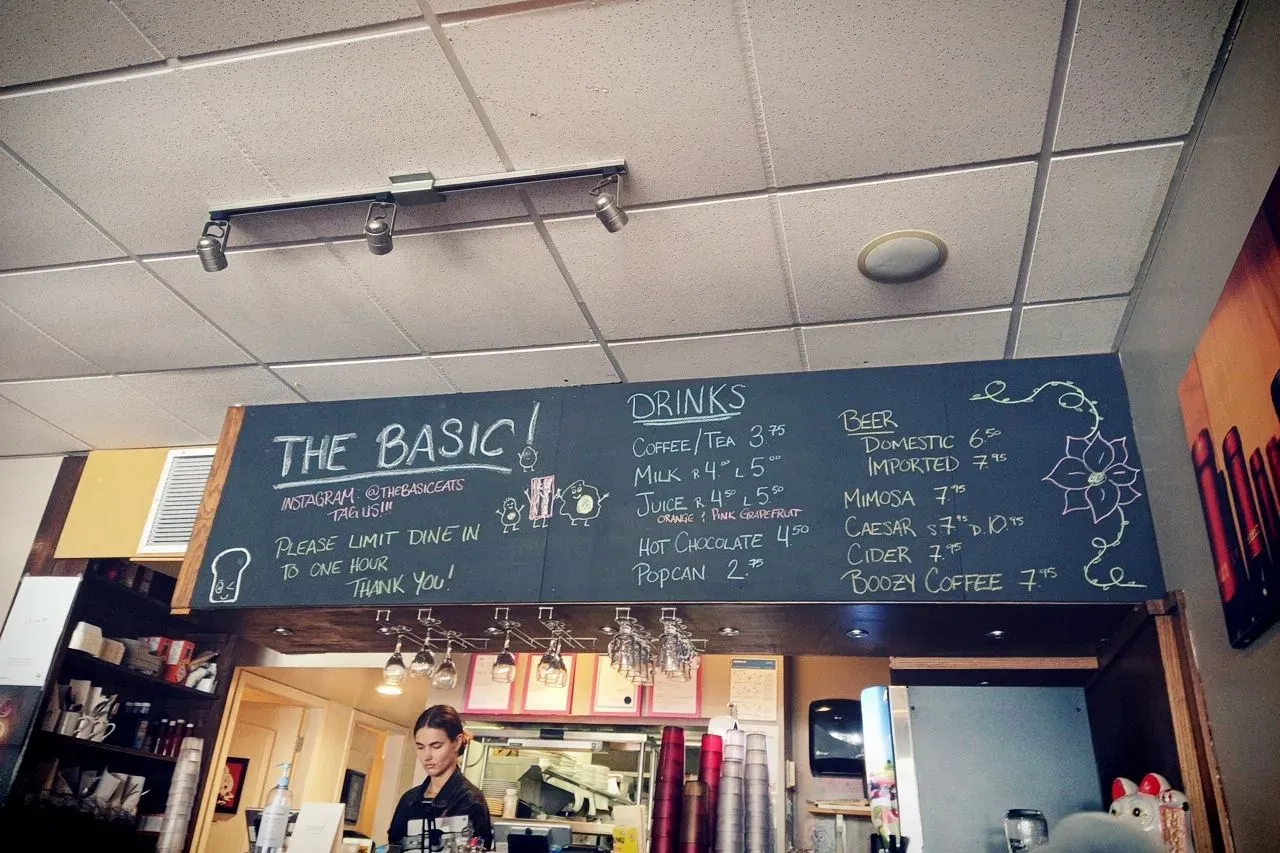 THE BASIC!
INSTAGRAM: @THEBASICEATS
TAG US!!!
PLEASE LIMIT DINE IN
TO ONE HOUR
THANK YOU!
DRINKS
COFFEE/TEA 3.75
MILK R 4.00 L 5.00
JUICE R 4.50 L 5.50
ORANGE & PINK GRAPEFRUIT
HOT CHOCOLATE 4.50
POP CAN 2.75
BEER
DOMESTIC 6.50
IMPORTED 7.95
MIMOSA 7.95
CAESAR S 7.95 D 10.95
CIDER 7.95
BOOZY COFFEE 7.95